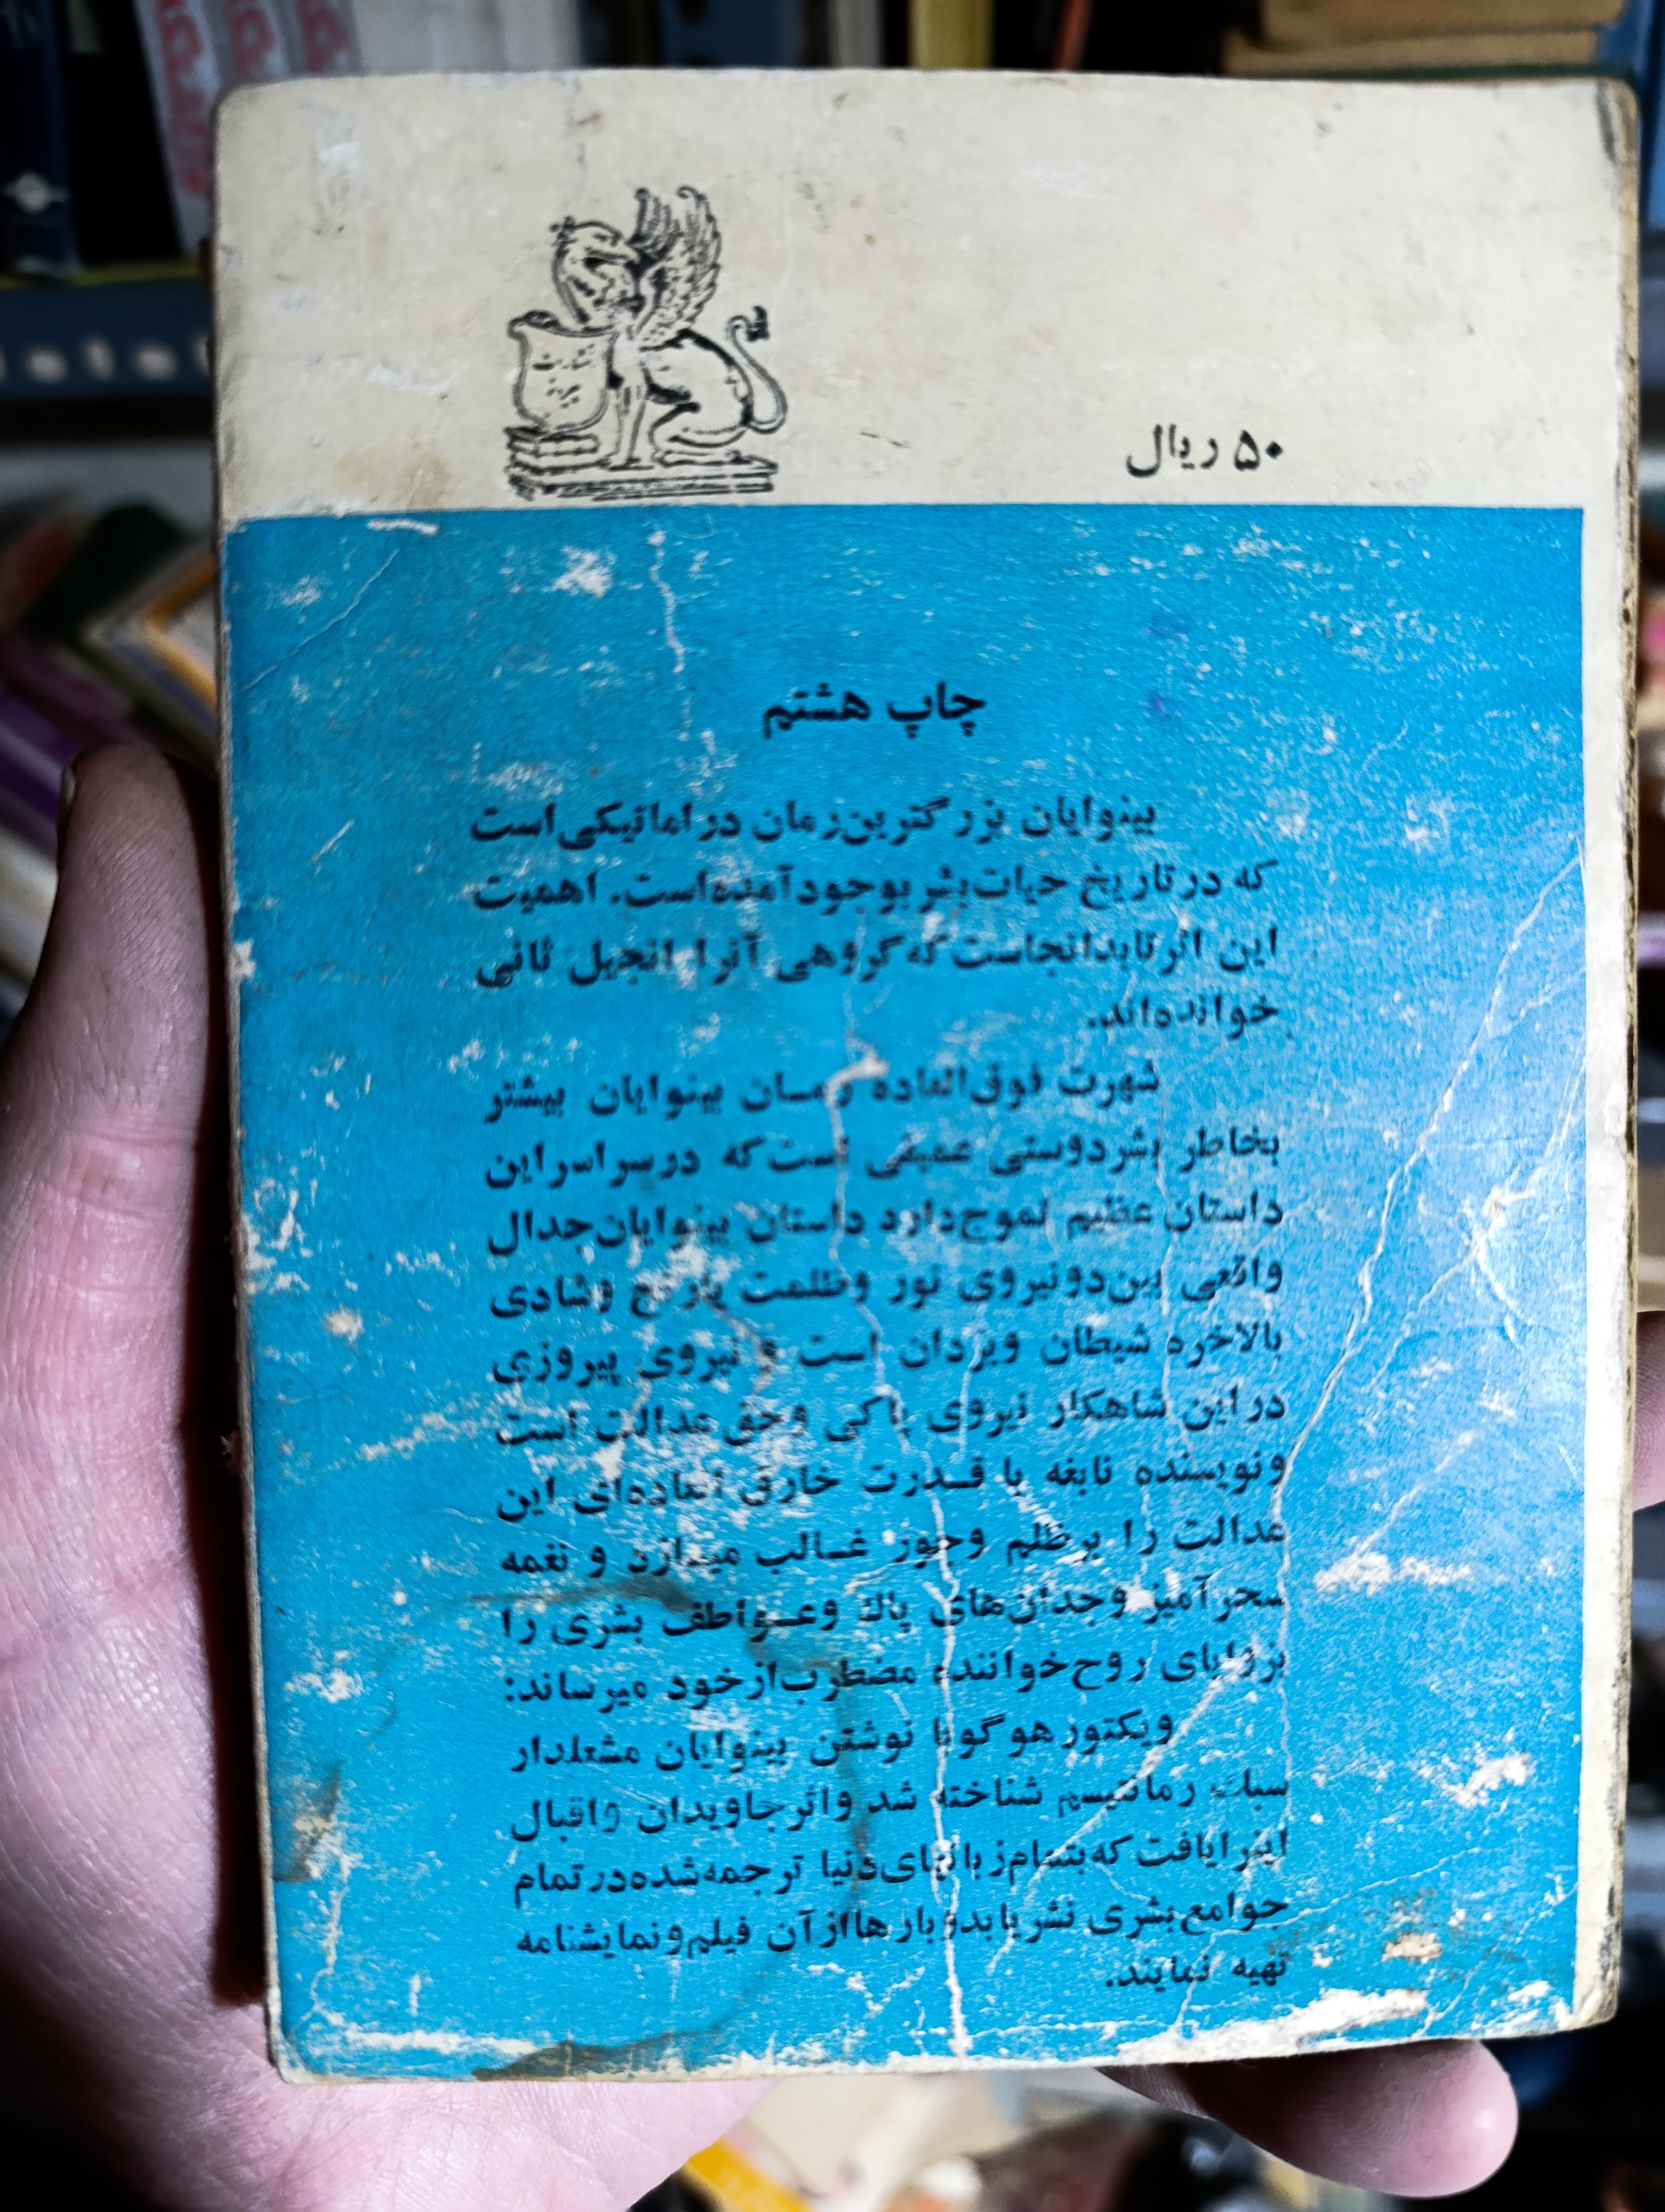 ۵۰ ریال
چاپ هشتم
بینوایان بزرگترین رمان دراماتیکی است
که در تاریخ حیات بشر بوجود آمده است. اهمیت
این اثر تا بدانجاست که گروهی آنرا انجیل ثانی
خوانده‌اند.
شهرت فوق‌العاده رمان بینوایان بیشتر
بخاطر بشر دوستی عمیقی است که در سراسر این
داستان عظیم تموج دارد داستان بینوایان جدال
واقعی بین دو نیروی نور و ظلمت یا رنج و شادی
بالاخره شیطان و یزدان است و نیروی پیروزی
در این شاهکار نیروی پاکی و حق عدالت است
و نویسنده نابغه با قدرت خارق‌العاده‌ای این
عدالت را بر ظلم و جور غالب میسازد و نغمه
سحرآمیز وجدان‌های پاک و عواطف بشری را
بزوایای روح خواننده مضطرب از خود میرساند:
ویکتور هوگو با نوشتن بینوایان مشعلدار
سبک رمانتیسم شناخته شد و اثر جاویدان و اقبال
اینرا یافت که بتمام زبانهای دنیا ترجمه شده در تمام
جوامع بشری نشر یابد و بارها از آن فیلم و نمایشنامه
تهیه نمایند.